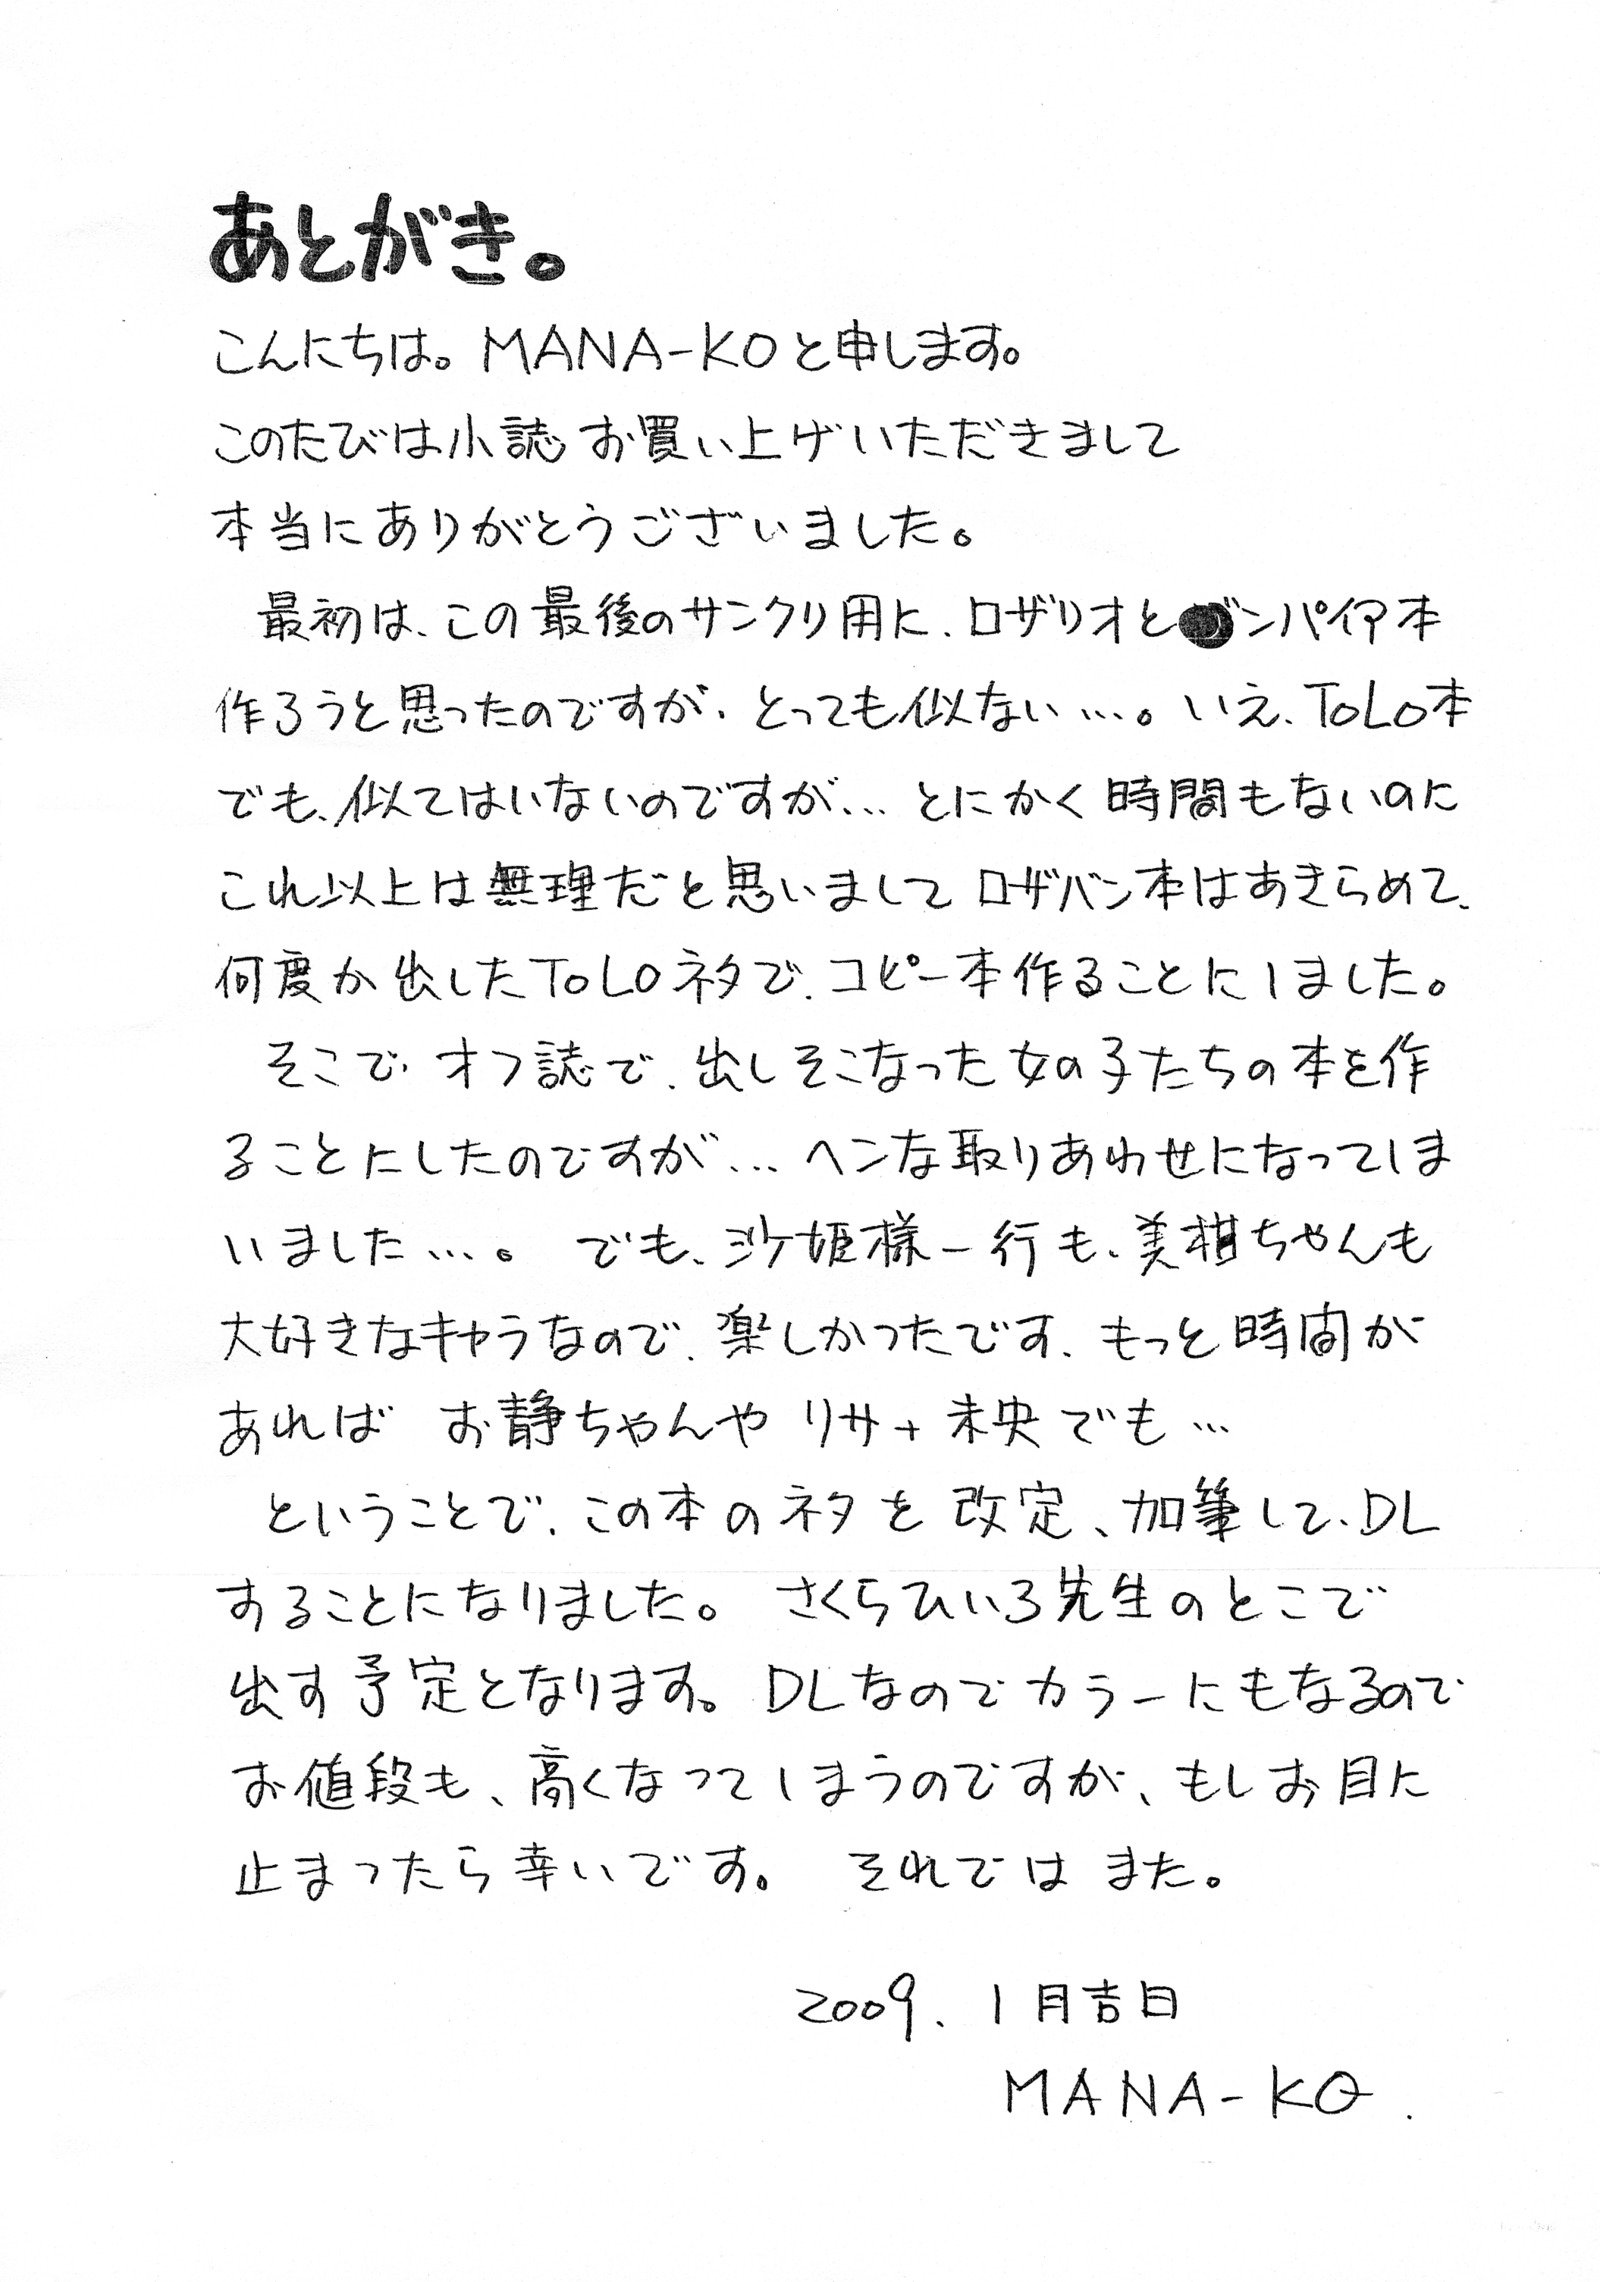 あとがき。
こんにちは。MANA-KOと申します。
このたびは小誌お買い上げいただきまして
本当にありがとうございました。
最初は、この最後のサンクリ用に、ロザリオとバンパイア本
作ろうと思ったのですが、とっても似ない…。いえ、ToLo本
でも、似てはいないのですが…とにかく時間もないのに
これ以上は無理だと思いましてロザバン本はあきらめて、
何度か出したToLoネタで、コピー本作ることにしました。
そこで、オフ誌で、出しそこなった女の子たちの本を作
ることにしたのですが…ヘンな取りあわせになってしま
いました…。でも、沙姫様一行も、美柑ちゃんも
大好きなキャラなので、楽しかったです、もっと時間が
あれば お静ちゃんや リサ+未央でも…
ということで、この本のネタを改定、加筆して、DL
することになりました。さくらひいろ先生のとこで
出す予定となります。DLなのでカラーにもなるので
お値段も、高くなってしまうのですが、もしお目に
止まったら幸いです。それではまた。
2009.1月吉日
MANA-KO.